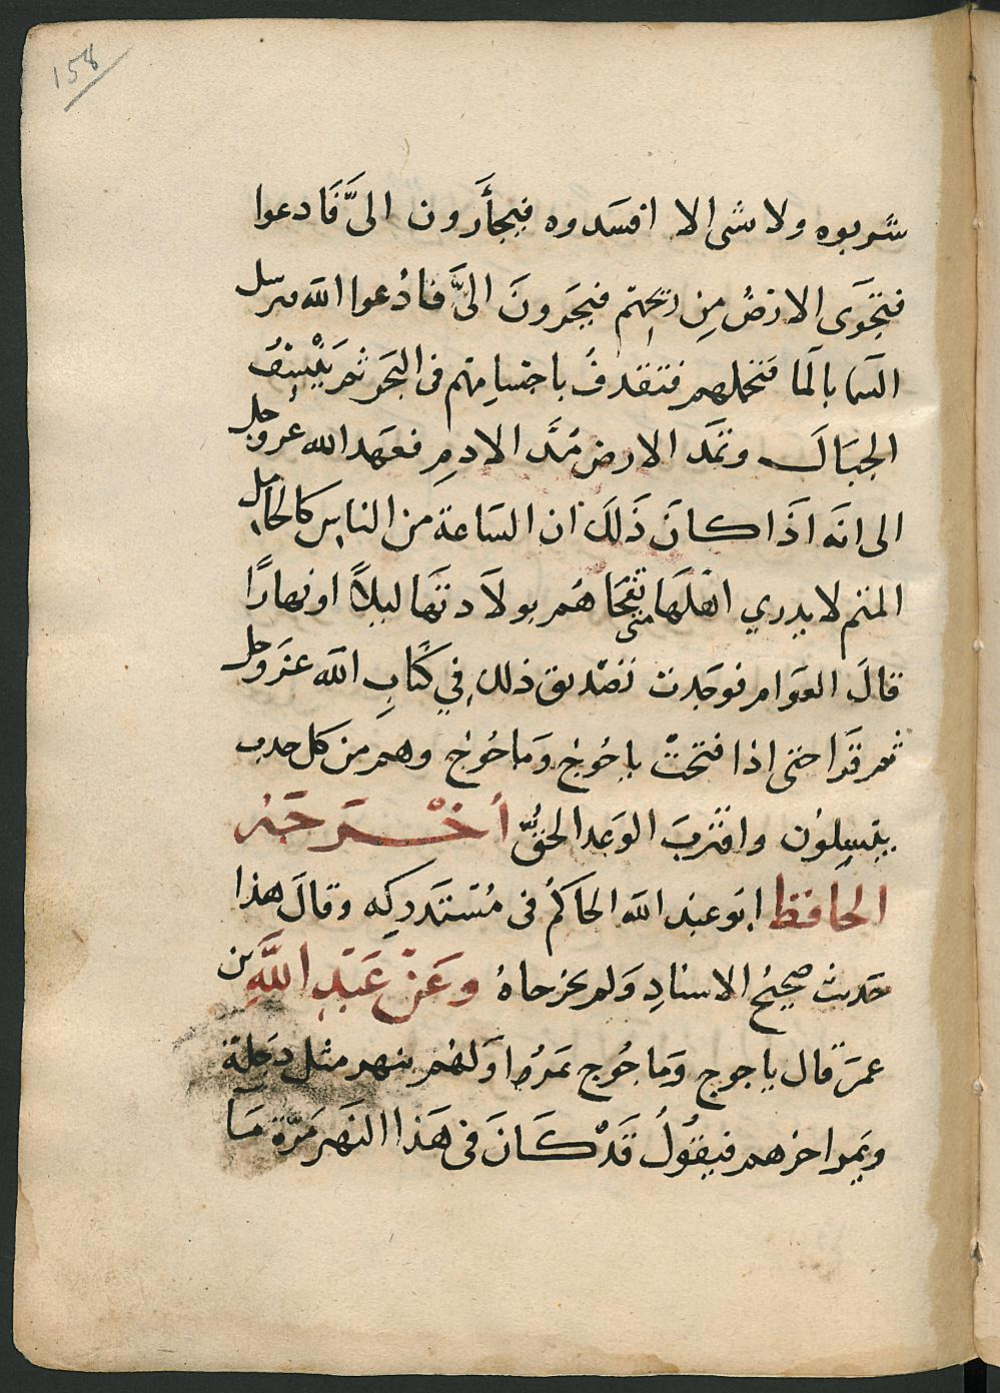 158
شربوه ولا شى الا افسدوه فيجأرون الىَّ فادعوا
فتجوى الارض من ريحهم فيجرون الىَّ فادعوا الله فيرسل
السما بالما فتحملهم فتقذف باجسامهم فى البحر ثم ينسف
الجبال وتمد الارض مدَّ الاديم فعهد الله عز وجل
الى انه اذا كان ذلك ان الساعة من الناس كالحامل
المتم لا يدري اهلها متى تفجاهم بولادتها ليلاً او نهارًا
قال العوام فوجدت تصديق ذلك في كتاب الله عز وجل
ثم قرا حتى اذا فتحت ياجوج وماجوج وهم من كل حدب
ينسلون واقترب الوعد الحق أخرجه
الحافظ ابو عبد الله الحاكم فى مستدركه وقال هذا
حديث صحيح الاسناد ولم يخرجاه وعن عبد الله بن
عمر قال ياجوج وماجوج يمر اولهم بنهر مثل دجلة
ويمر اخرهم فيقول قد كان فى هذا النهر مرة ما